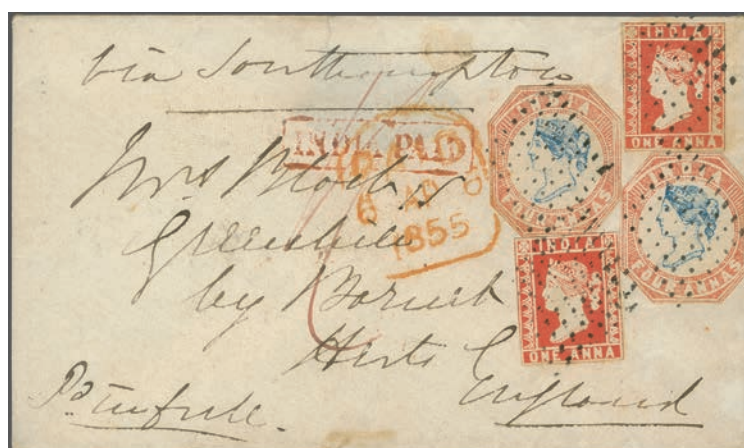 via Southampton
INDIA PAID
PAID
6 AP 6
1855
Mrs
Greenhill
by Barnet
Herts
England
Pd in full.
INDIA
ONE ANNA
INDIA
FOUR ANNAS
INDIA
FOUR ANNAS
INDIA
ONE ANNA